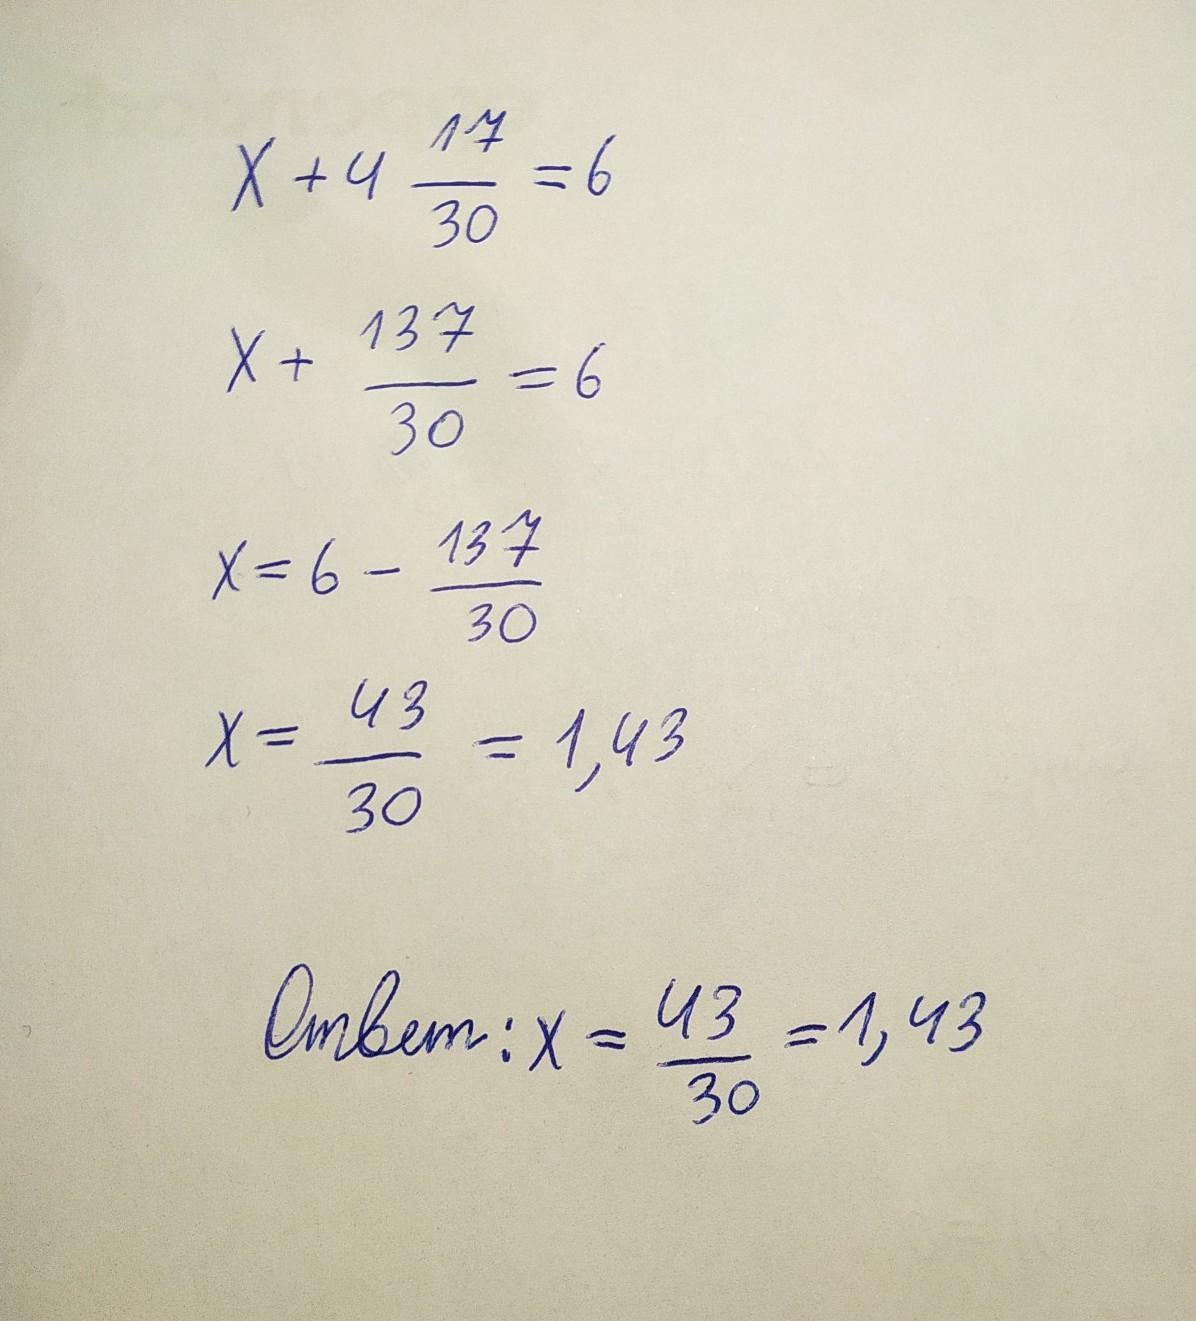 x + 4 17/30 = 6
x + 137/30 = 6
x = 6 - 137/30
x = 43/30 = 1,43
Ответ: x = 43/30 = 1,43